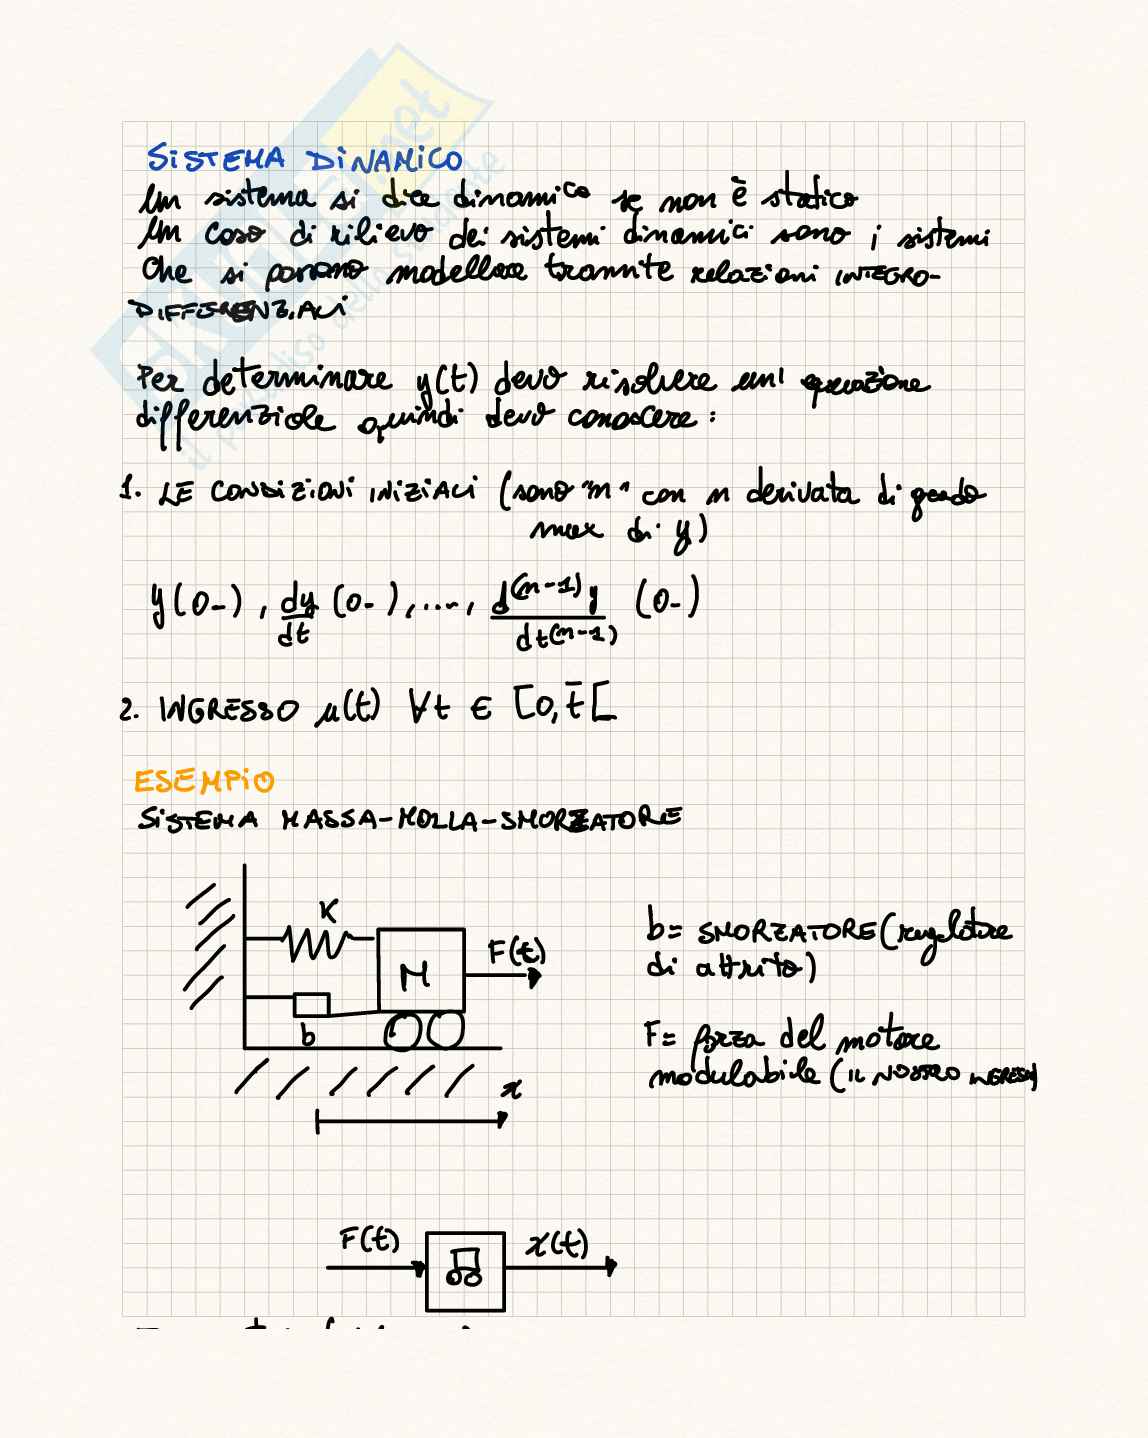 SiSTEMA DiNAMiCO
Un sistema si dice dinamico se non è statico
Un caso di rilievo dei sistemi dinamici sono i sistemi
Che si possono modellare tramite relazioni INTEGRO-
DIFFERENZIALI
Per determinare y(t) devo risolvere un' equazione
differenziale quindi devo conoscere :
1. LE CONDIZIONI INIZIALI (sono "n" con n derivata di grado
max di y)
y(0-) , dy/dt (0-) , ...., d(n-1)y/dt(n-1) (0-)
2. INGRESSO u(t) ∀t ∈ [0, t̄ [
ESEMPiO
SiSTEMA MASSA-MOLLA-SMORZATORE
K
M
F(t)
b
x
b= SMORZATORE (regolatore
di attrito)
F= forza del motore
modulabile (IL NOSTRO INGRESSO)
F(t)
x(t)
skuola.net
il paradiso dello studente